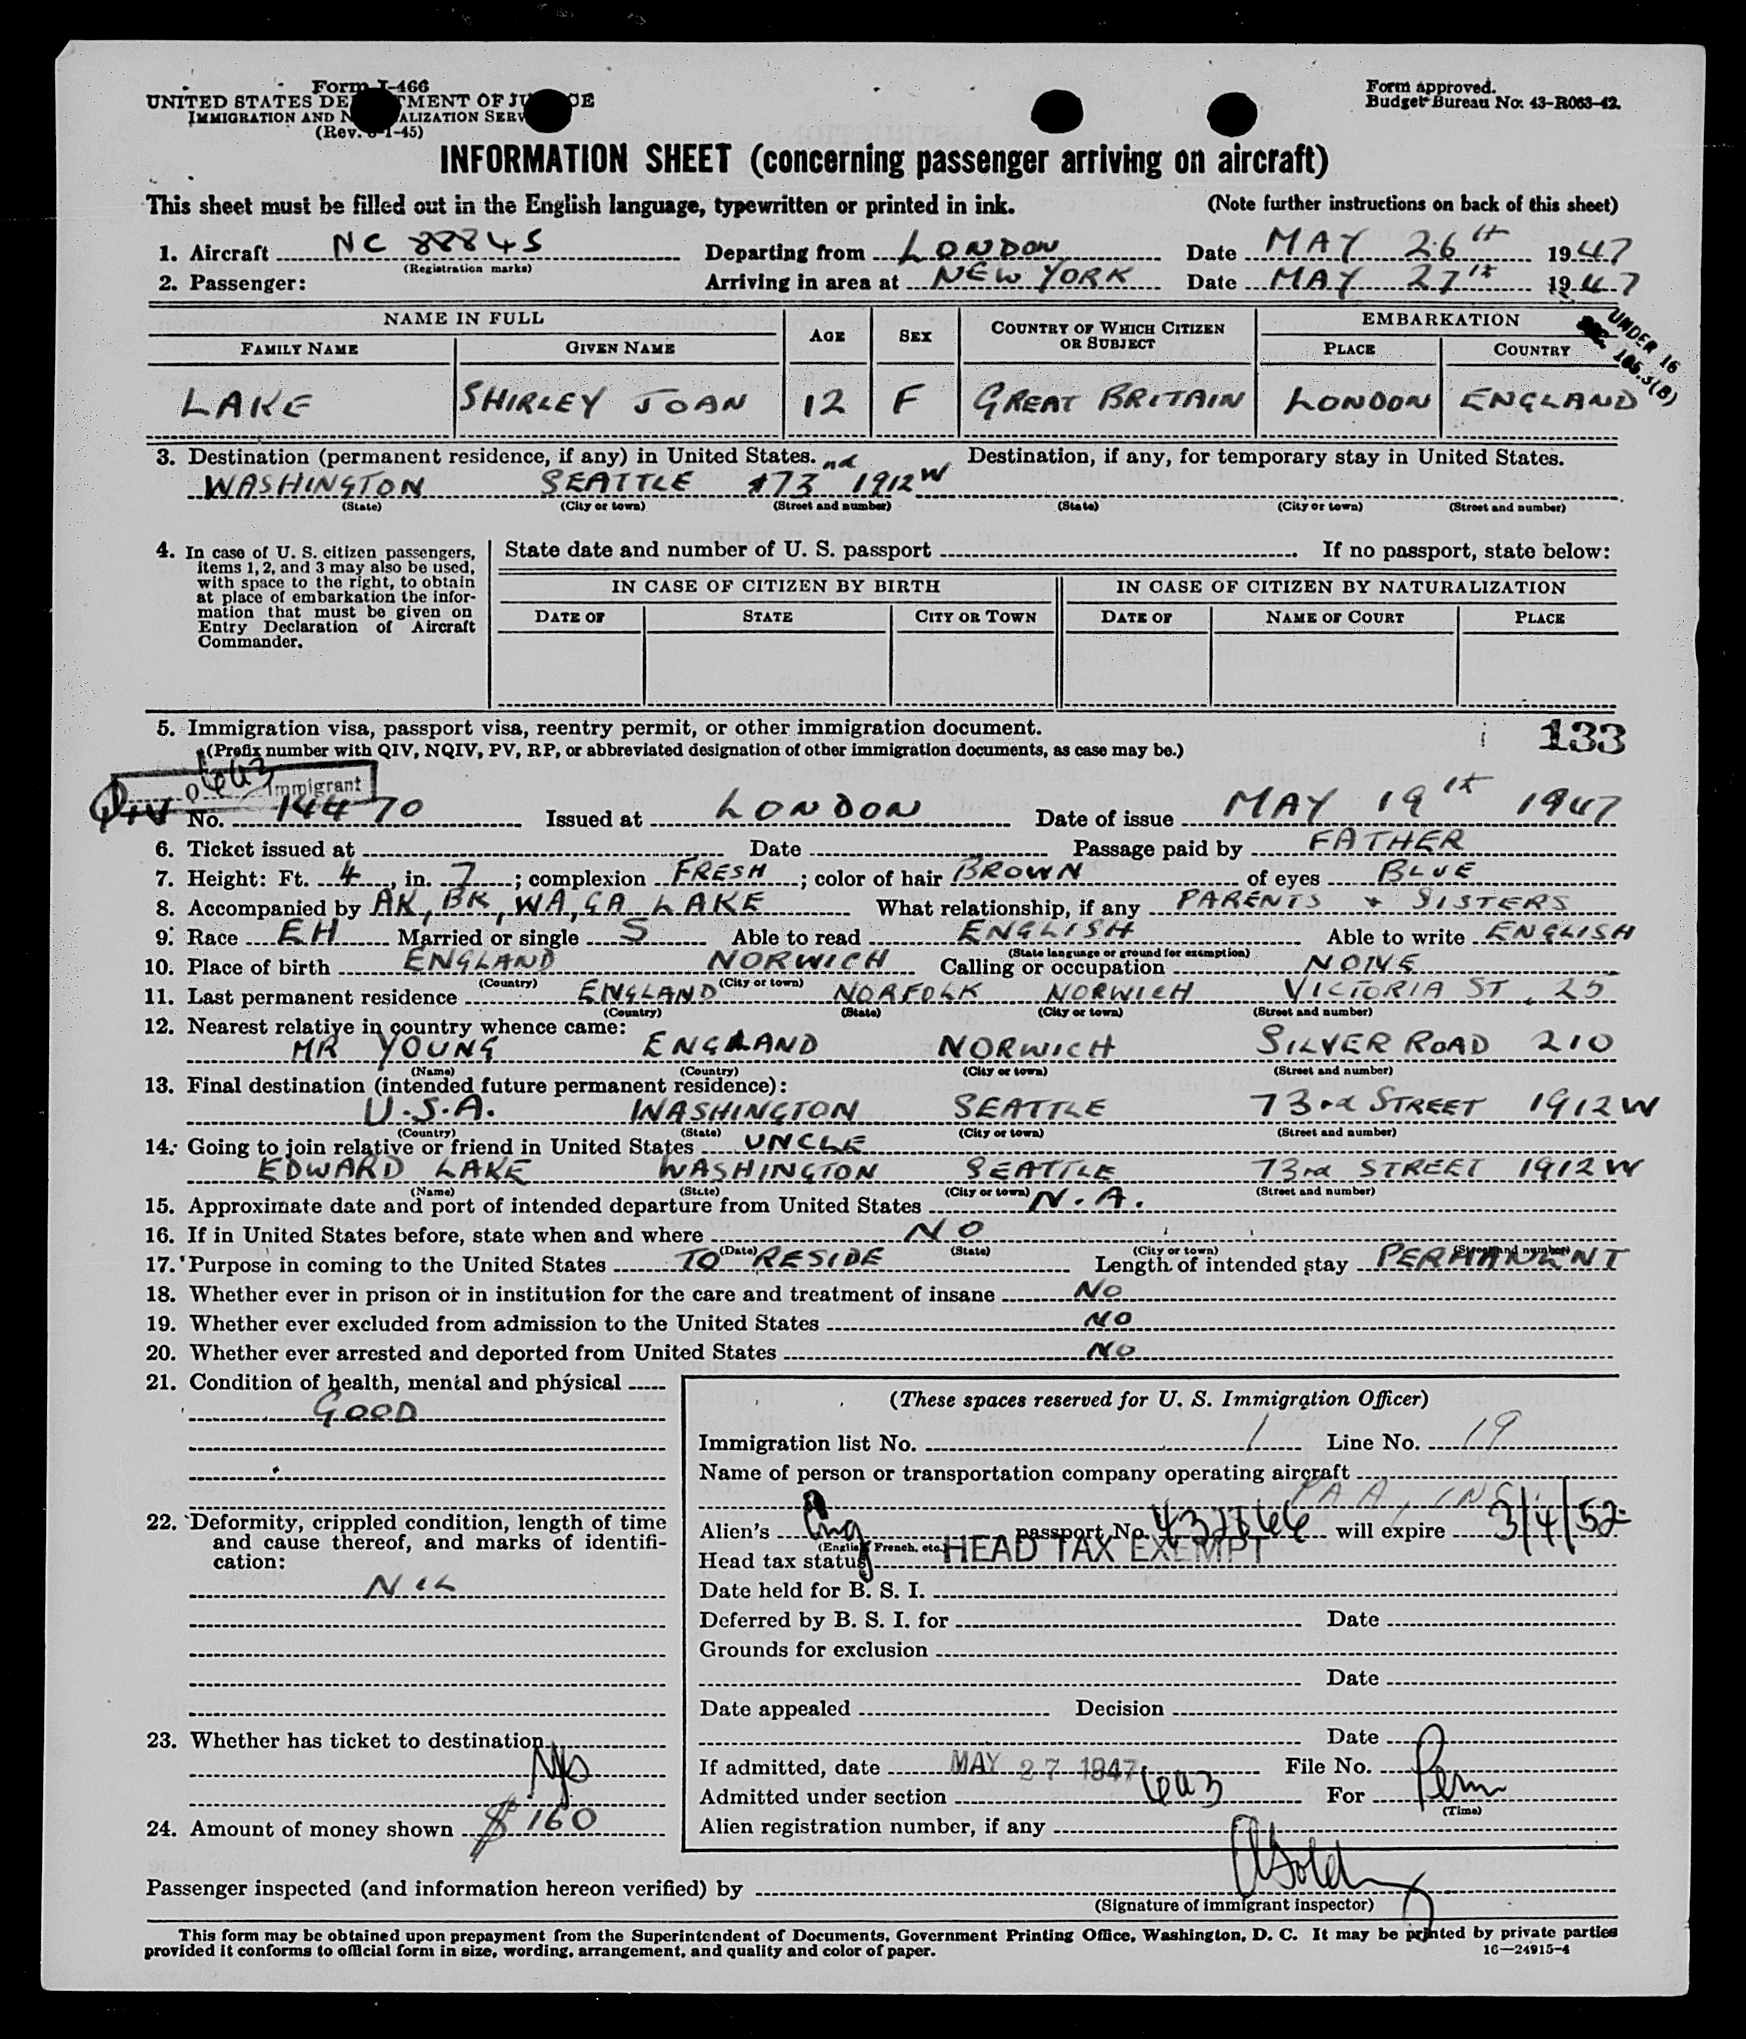 Form I-466
UNITED STATES DEPARTMENT OF JUSTICE
IMMIGRATION AND NATURALIZATION SERVICE
(Rev. 6-1-45)
Form approved.
Budget Bureau No. 43-R063-42.
INFORMATION SHEET (concerning passenger arriving on aircraft)
This sheet must be filled out in the English language, typewritten or printed in ink. (Note further instructions on back of this sheet)
1. Aircraft NC 88845 Departing from LONDON Date MAY 26th 1947
(Registration marks)
2. Passenger: Arriving in area at NEW YORK Date MAY 27th 1947
NAME IN FULL AGE SEX COUNTRY OF WHICH CITIZEN OR SUBJECT EMBARKATION
FAMILY NAME GIVEN NAME PLACE COUNTRY
UNDER 16
SEC 105.3(B)
LAKE SHIRLEY JOAN 12 F GREAT BRITAIN LONDON ENGLAND
3. Destination (permanent residence, if any) in United States. Destination, if any, for temporary stay in United States.
WASHINGTON SEATTLE 73nd 1912W
(State) (City or town) (Street and number) (State) (City or town) (Street and number)
4. In case of U. S. citizen passengers, items 1, 2, and 3 may also be used, with space to the right, to obtain at place of embarkation the information that must be given on Entry Declaration of Aircraft Commander.
State date and number of U. S. passport . If no passport, state below:
IN CASE OF CITIZEN BY BIRTH IN CASE OF CITIZEN BY NATURALIZATION
DATE OF STATE CITY OR TOWN DATE OF NAME OF COURT PLACE
5. Immigration visa, passport visa, reentry permit, or other immigration document. 133
(Prefix number with QIV, NQIV, PV, RP, or abbreviated designation of other immigration documents, as case may be.)
6a3
Immigrant
QIV No. 14470 Issued at LONDON Date of issue MAY 19th 1947
6. Ticket issued at Date Passage paid by FATHER
7. Height: Ft. 4, in. 7; complexion FRESH; color of hair BROWN of eyes BLUE
8. Accompanied by AK, BK, WA, GA LAKE What relationship, if any PARENTS + SISTERS
9. Race EH Married or single S Able to read ENGLISH Able to write ENGLISH
(State language or ground for exemption)
10. Place of birth ENGLAND NORWICH Calling or occupation NONE
(Country) (City or town)
11. Last permanent residence ENGLAND NORFOLK NORWICH VICTORIA ST, 25
(Country) (State) (City or town) (Street and number)
12. Nearest relative in country whence came:
MR YOUNG ENGLAND NORWICH SILVER ROAD 210
(Name) (Country) (City or town) (Street and number)
13. Final destination (intended future permanent residence):
U.S.A. WASHINGTON SEATTLE 73rd STREET 1912W
(Country) (State) (City or town) (Street and number)
14. Going to join relative or friend in United States UNCLE
EDWARD LAKE WASHINGTON SEATTLE 73rd STREET 1912W
(Name) (State) (City or town) (Street and number)
15. Approximate date and port of intended departure from United States N.A.
16. If in United States before, state when and where NO
(Date) (State) (City or town) (Street and number)
17. Purpose in coming to the United States TO RESIDE Length of intended stay PERMANENT
18. Whether ever in prison or in institution for the care and treatment of insane NO
19. Whether ever excluded from admission to the United States NO
20. Whether ever arrested and deported from United States NO
21. Condition of health, mental and physical
GOOD
22. Deformity, crippled condition, length of time and cause thereof, and marks of identification:
NIL
23. Whether has ticket to destination
Yes
24. Amount of money shown $160
(These spaces reserved for U. S. Immigration Officer)
Immigration list No. 1 Line No. 19
Name of person or transportation company operating aircraft
PAA, INC.
Alien's Eng passport No. 432866 will expire 3/4/52
(English, French, etc.)
Head tax status HEAD TAX EXEMPT
Date held for B. S. I.
Deferred by B. S. I. for Date
Grounds for exclusion
Date
Date appealed Decision
Date
If admitted, date MAY 27 1947 File No.
Admitted under section 6a3 For Perm
(Time)
Alien registration number, if any
Passenger inspected (and information hereon verified) by
(Signature of immigrant inspector)
This form may be obtained upon prepayment from the Superintendent of Documents, Government Printing Office, Washington, D. C. It may be printed by private parties
provided it conforms to official form in size, wording, arrangement, and quality and color of paper. 16—24915-4